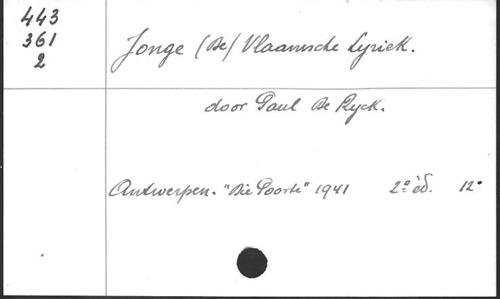 443
361
2
Jonge (De) Vlaamsche Lyriek.
door Paul De Ryck.
Antwerpen. "Die Poorte" 1941 2º éd. 12º